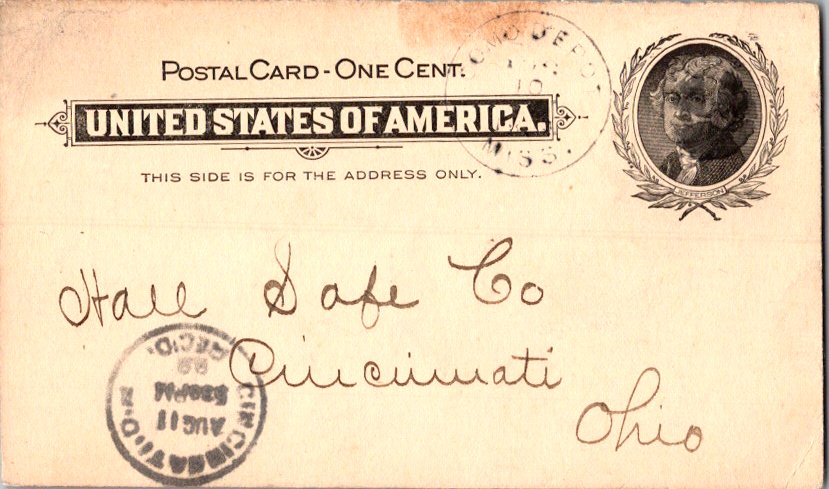 POSTAL CARD - ONE CENT.
UNITED STATES OF AMERICA.
THIS SIDE IS FOR THE ADDRESS ONLY.
OMO DEPOT
10
MISS.
JEFFERSON
Hall Safe Co
Cincinnati
Ohio
CINCINNATI, O.
AUG 11
530PM
99
REC'D.